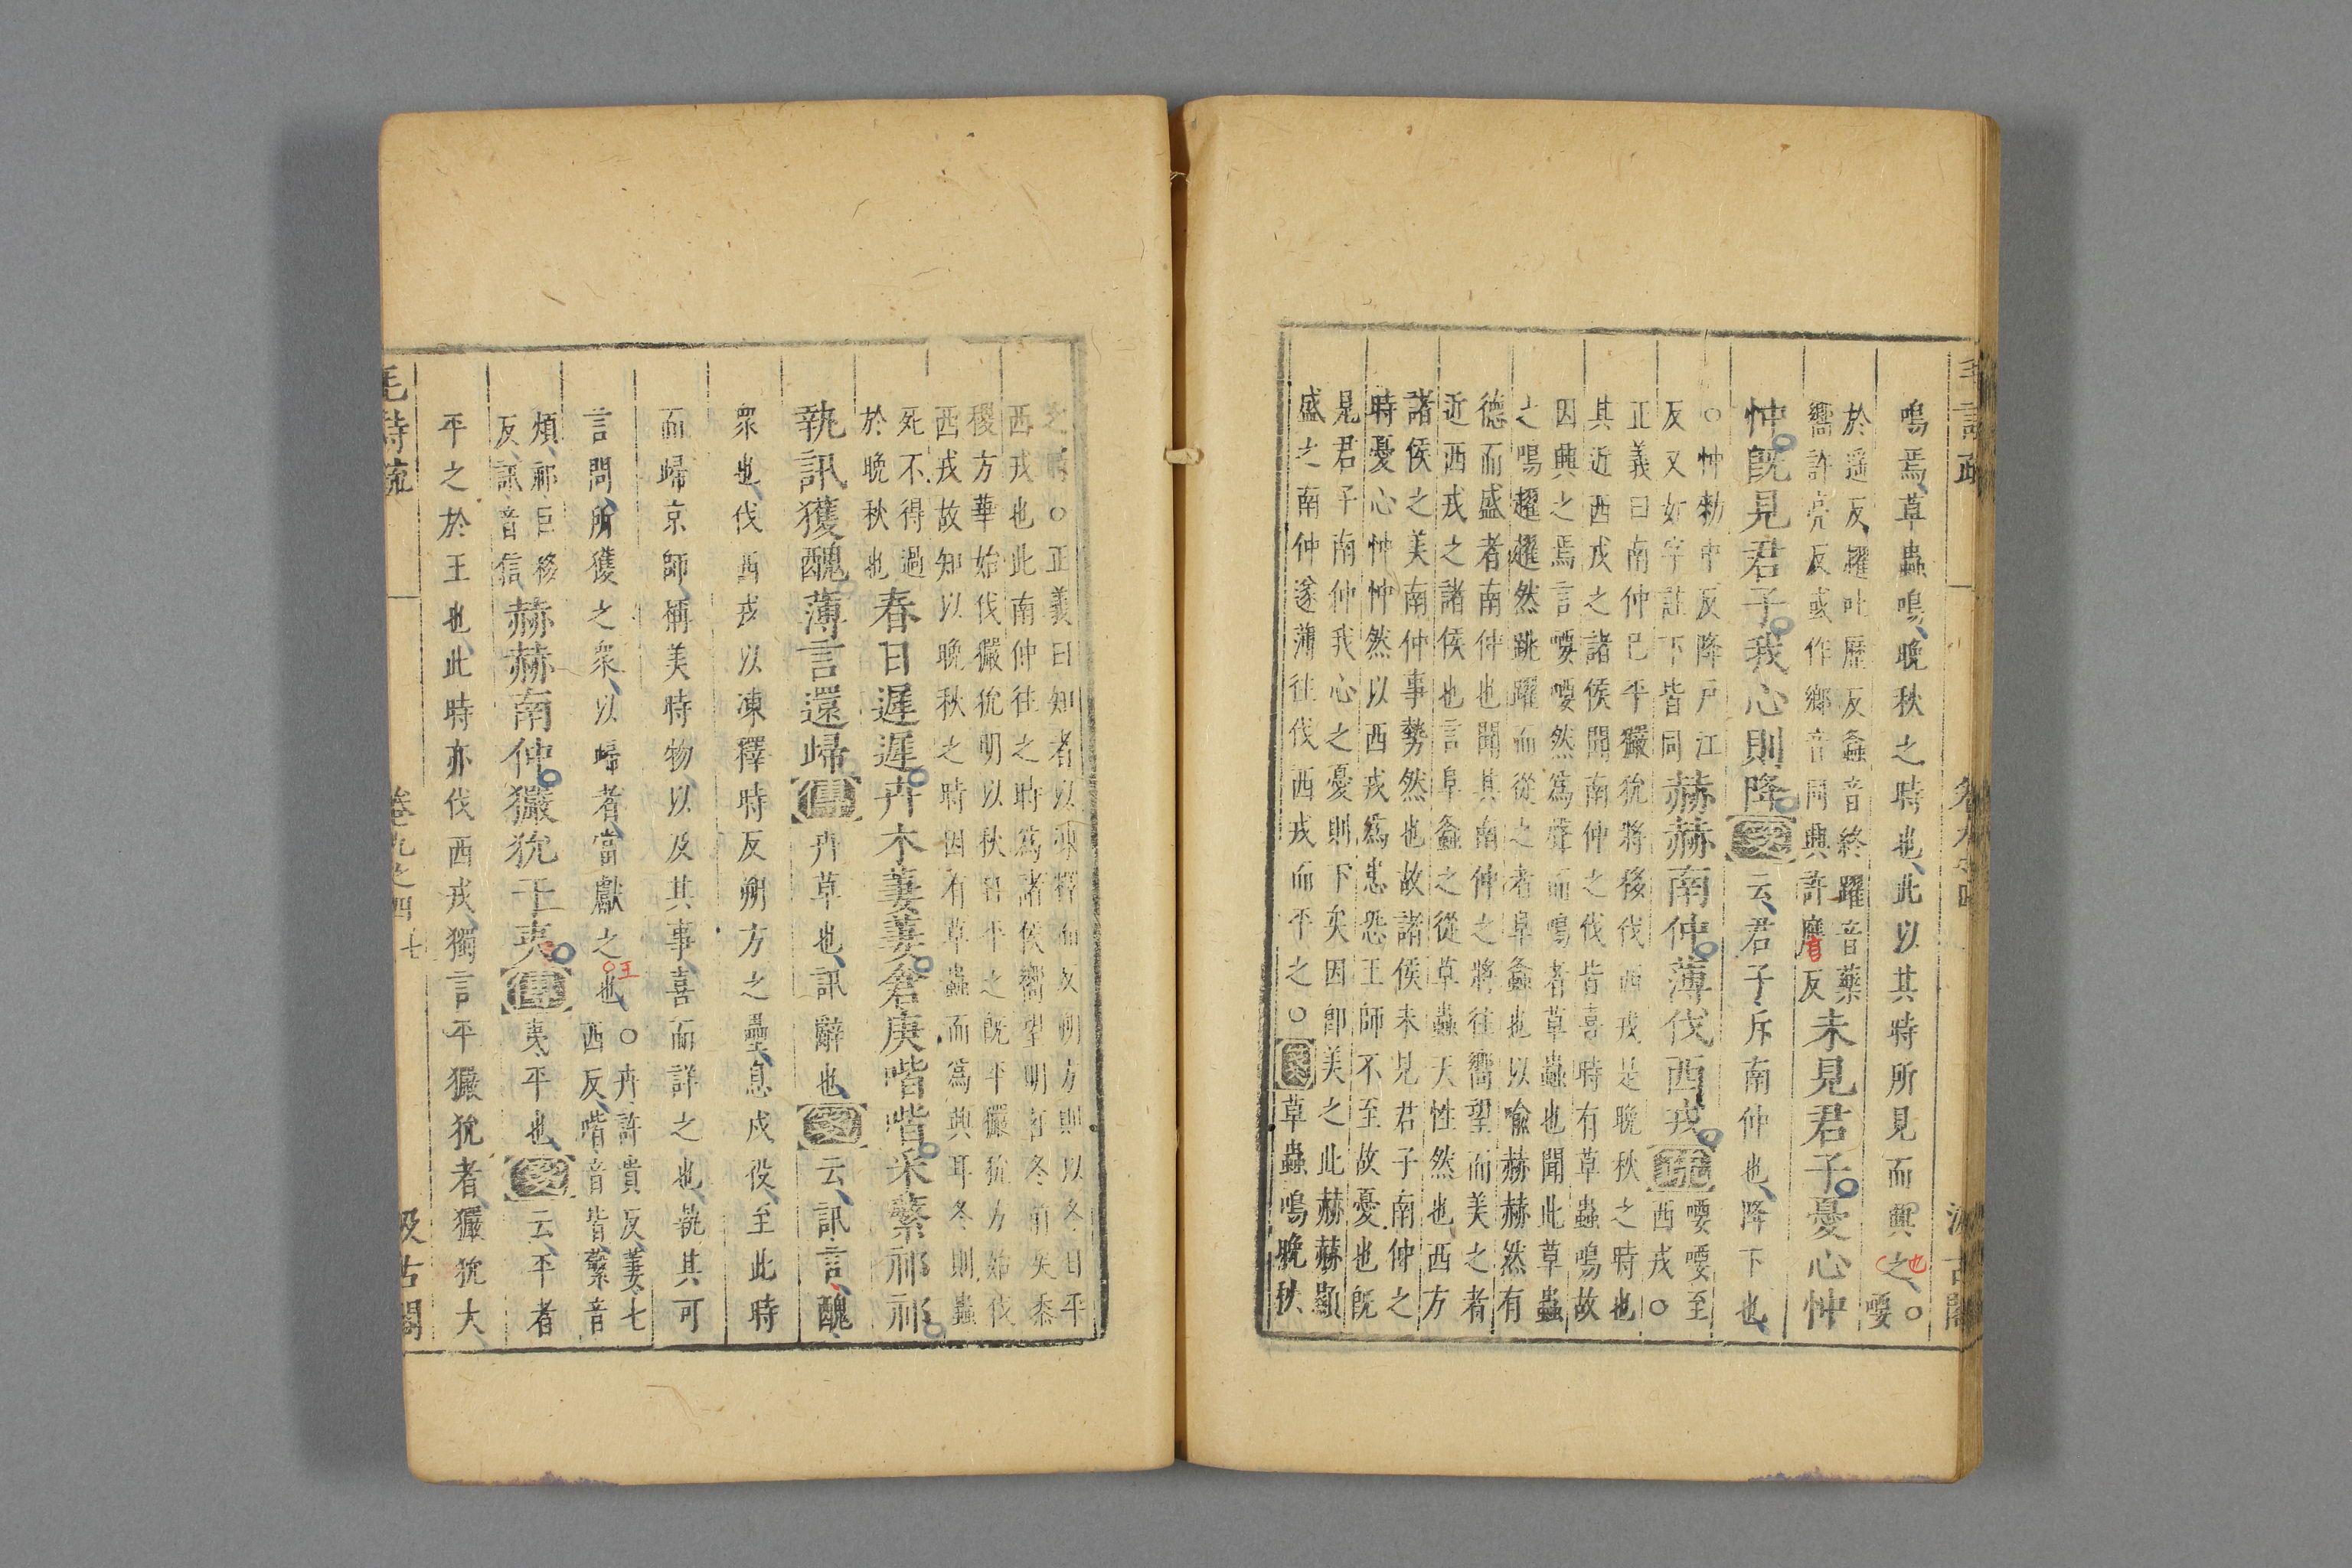 毛詩疏
汲古閣
鳴焉草蟲鳴晚秋之時也此以其時所見而興之也○喓
於遥反趯吐歷反螽音終躍音藥
嚮許亮反或作鄉音同興許應反
未見君子憂心忡
忡既見君子我心則降箋云君子斥南仲也降下也
○忡勑中反降戶江
反又如字註下皆同
赫赫南仲薄伐西戎疏
喓喓至
西戎○
正義曰南仲巳平玁狁將移伐西戎是晚秋之時也
其近西戎之諸侯聞南仲之伐皆喜時有草蟲鳴故
因興之焉言喓喓然為聲而鳴者草蟲也聞此草蟲
之鳴趯趯然跳躍而從之者阜螽也以喻赫赫然有
德而盛者南仲也聞其南仲之將往嚮望而美之者
近西戎之諸侯也言阜螽之從草蟲天性然也西方
諸侯之美南仲事勢然也故諸侯未見君子南仲之
時憂心忡忡然以西戎為患恐王師不至故憂也既
見君子南仲我心之憂則下矣因卽美之此赫赫顯
盛之南仲遂薄往伐西戎而平之○箋草蟲鳴晚秋
之時○正義曰知者以凍釋而反朔方則以冬日平
西戎也此南仲往之時為諸侯嚮望明在冬前矣黍
稷方華始伐玁狁明以秋日平之既平玁狁方始伐
西戎故知以晚秋之時因有草蟲而為興耳冬則蟲
死不得過
於晚秋也
春日遲遲卉木萋萋倉庚喈喈采蘩祁祁
執訊獲醜薄言還歸傳卉草也訊辭也箋云訊言醜
衆也伐西戎以凍釋時反朔方之壘息戍役至此時
而歸京師稱美時物以及其事喜而詳之也執其可
言問所獲之衆以歸者當獻之也○王
○卉許貴反萋七
西反喈音皆蘩音
煩祁巨移
反訊音信
赫赫南仲玁狁于夷傳夷平也箋云平者
平之於王也此時亦伐西戎獨言平玁狁者玁狁大
毛詩疏
卷九之四
七
汲古閣